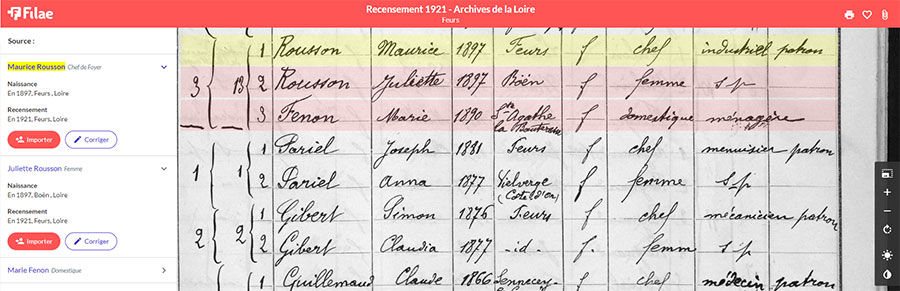 Filae
Recensement 1921 - Archives de la Loire
Feurs
Source :
Maurice Rousson Chef de Foyer
Naissance
En 1897, Feurs, Loire
Recensement
En 1921, Feurs, Loire
Importer Corriger
Juliette Rousson Femme
Naissance
En 1897, Boën, Loire
Recensement
En 1921, Feurs, Loire
Importer Corriger
Marie Fenon Domestique
1 Rousson Maurice 1897 Feurs f chef industriel patron
3 13 2 Rousson Juliette 1897 Boën f femme s p
3 Fenon Marie 1890 Ste Agathe la Bouteresse f domestique ménagère
1 Pariel Joseph 1881 Feurs f chef menuisier patron
1 1 2 Pariel Anna 1877 Vielverge (Côte d'Or) f femme s p
1 Gibert Simon 1876 Feurs f chef mécanicien patron
2 2 2 Gibert Claudia 1877 -id- f. femm s p
1 Guillemaud Claude 1866 Sennecey- f chef médecin patron